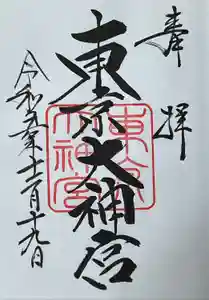 奉拝
東京大神宮
東京大神宮
令和元年十二月十九日